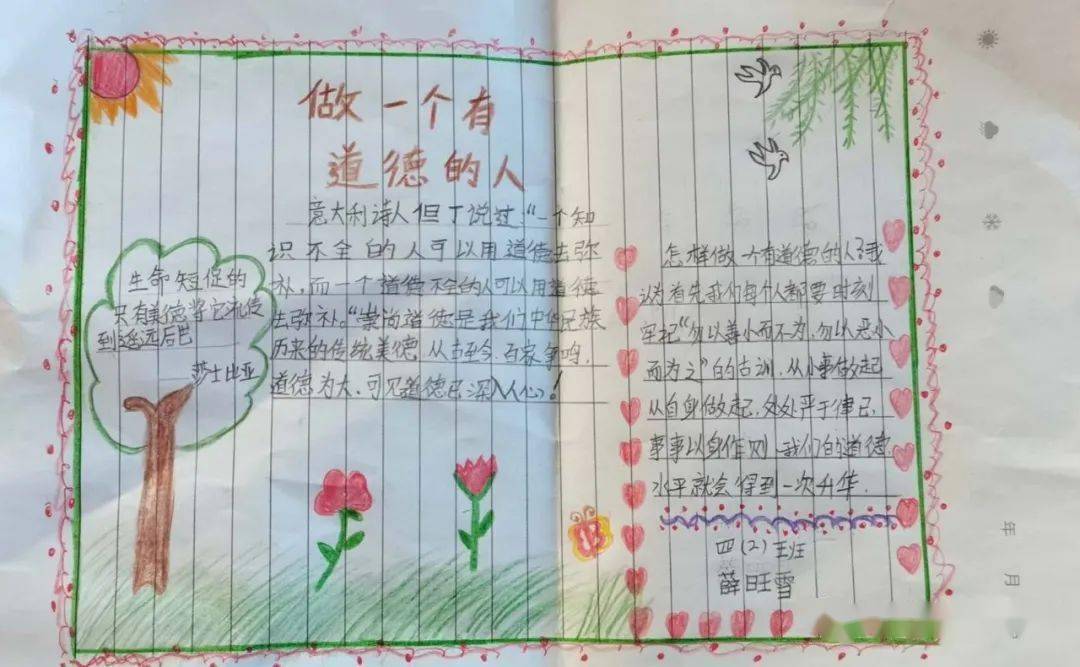 做一个有
道德的人
意大利诗人但丁说过:“一个知
识不全的人可以用道德去弥
补,而一个道德不全的人可以用道德
去弥补。”崇尚道德是我们中华民族
历来的传统美德,从古至今,百家争鸣,
道德为大,可见道德已深入人心!
生命短促的
只有美德将它流传
到遥远后世
莎士比亚
怎样做一个有道德的人?我
认为首先我们每个人都要时刻
牢记“勿以善小而不为,勿以恶小
而为之”的古训,从小事做起
从自身做起,处处严于律已,
事事以身作则,我们的道德
水平就会得到一次升华.
四(2)班
薛旺雪
年 月